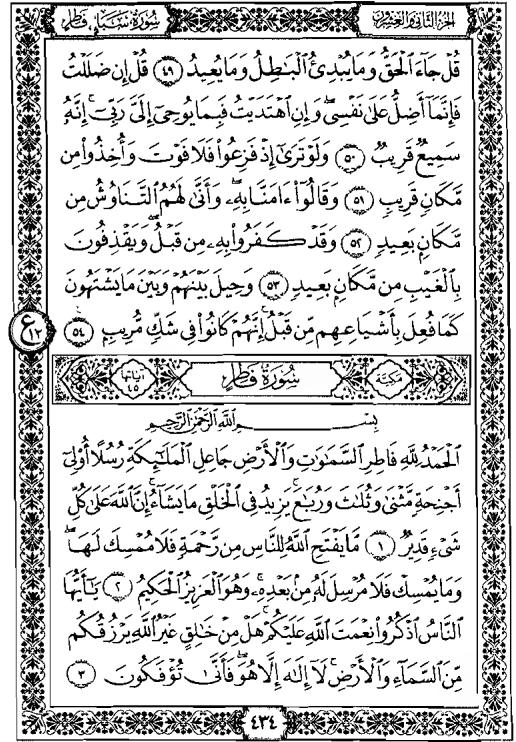 الجزء الثاني والعشرين سورة سبأ، فاطر
قُلْ جَآءَ ٱلْحَقُّ وَمَا يُبْدِئُ ٱلْبَٰطِلُ وَمَا يُعِيدُ ٤٩ قُلْ إِن ضَلَلْتُ
فَإِنَّمَآ أَضِلُّ عَلَىٰ نَفْسِى ۖ وَإِنِ ٱهْتَدَيْتُ فَبِمَا يُوحِىٓ إِلَىَّ رَبِّىٓ ۚ إِنَّهُۥ
سَمِيعٌ قَرِيبٌ ٥٠ وَلَوْ تَرَىٰٓ إِذْ فَزِعُوا۟ فَلَا فَوْتَ وَأُخِذُوا۟ مِن
مَّكَانٍ قَرِيبٍ ٥١ وَقَالُوٓا۟ ءَامَنَّا بِهِۦ وَأَنَّىٰ لَهُمُ ٱلتَّنَاوُشُ مِن
مَّكَانٍۭ بَعِيدٍ ٥٢ وَقَدْ كَفَرُوا۟ بِهِۦ مِن قَبْلُ ۖ وَيَقْذِفُونَ
بِٱلْغَيْبِ مِن مَّكَانٍۭ بَعِيدٍ ٥٣ وَحِيلَ بَيْنَهُمْ وَبَيْنَ مَا يَشْتَهُونَ
كَمَا فُعِلَ بِأَشْيَاعِهِم مِّن قَبْلُ ۚ إِنَّهُمْ كَانُوا۟ فِى شَكٍّ مُّرِيبٍۭ ٥٤
ع ١٢
مكية سُورَةُ فَاطِرٍ آياتها ٤٥
بِسْمِ ٱللَّهِ ٱلرَّحْمَٰنِ ٱلرَّحِيمِ
ٱلْحَمْدُ لِلَّهِ فَاطِرِ ٱلسَّمَٰوَٰتِ وَٱلْأَرْضِ جَاعِلِ ٱلْمَلَٰٓئِكَةِ رُسُلًا أُو۟لِىٓ
أَجْنِحَةٍ مَّثْنَىٰ وَثُلَٰثَ وَرُبَٰعَ ۚ يَزِيدُ فِى ٱلْخَلْقِ مَا يَشَآءُ ۚ إِنَّ ٱللَّهَ عَلَىٰ كُلِّ
شَىْءٍ قَدِيرٌ ١ مَّا يَفْتَحِ ٱللَّهُ لِلنَّاسِ مِن رَّحْمَةٍ فَلَا مُمْسِكَ لَهَا ۖ
وَمَا يُمْسِكْ فَلَا مُرْسِلَ لَهُۥ مِنۢ بَعْدِهِۦ ۚ وَهُوَ ٱلْعَزِيزُ ٱلْحَكِيمُ ٢ يَٰٓأَيُّهَا
ٱلنَّاسُ ٱذْكُرُوا۟ نِعْمَتَ ٱللَّهِ عَلَيْكُمْ ۚ هَلْ مِنْ خَٰلِقٍ غَيْرُ ٱللَّهِ يَرْزُقُكُم
مِّنَ ٱلسَّمَآءِ وَٱلْأَرْضِ ۚ لَآ إِلَٰهَ إِلَّا هُوَ ۖ فَأَنَّىٰ تُؤْفَكُونَ ٣
٤٣٤